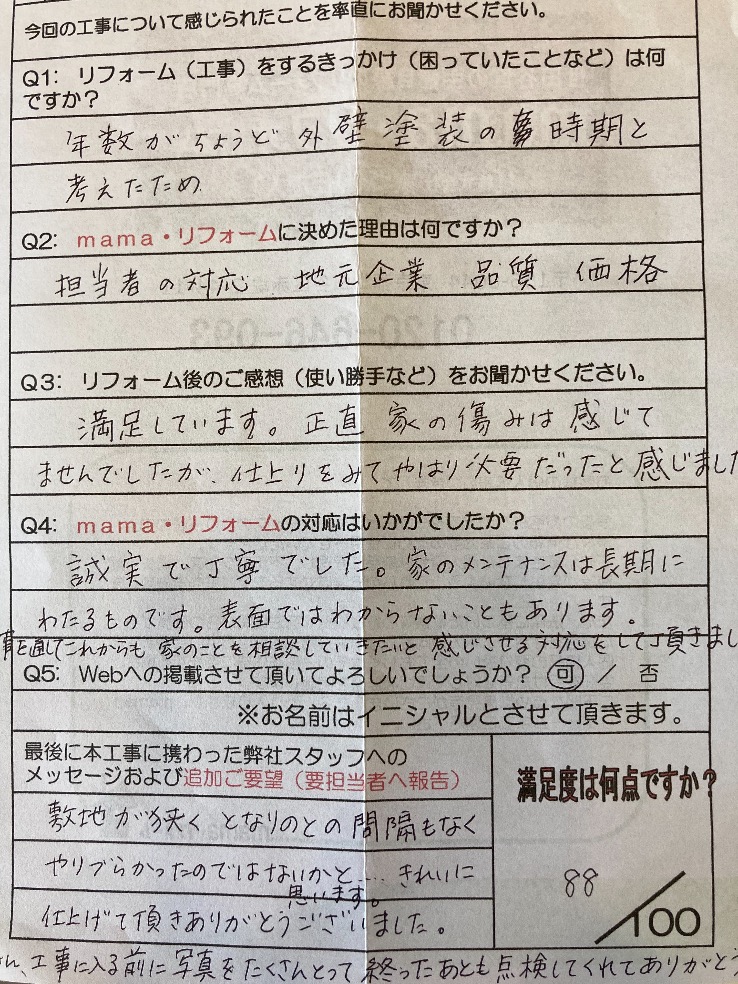 今回の工事について感じられたことを率直にお聞かせください。
Q1: リフォーム（工事）をするきっかけ（困っていたことなど）は何
ですか？
年数がちょうど外壁塗装の時期と
考えたため
Q2: mama・リフォームに決めた理由は何ですか？
担当者の対応 地元企業 品質 価格
Q3: リフォーム後のご感想（使い勝手など）をお聞かせください。
満足しています。正直 家の傷みは感じて
ませんでしたが、仕上りをみてやはり必要だったと感じました
Q4: mama・リフォームの対応はいかがでしたか？
誠実で丁寧でした。家のメンテナンスは長期に
わたるものです。表面ではわからないこともあります。
事を通してこれからも家のことを相談していきたいと感じさせる対応をして頂きまし
Q5: Webへの掲載させて頂いてよろしいでしょうか？ 可 ／ 否
※お名前はイニシャルとさせて頂きます。
最後に本工事に携わった弊社スタッフへの
メッセージおよび追加ご要望（要担当者へ報告）
敷地が狭く となりのとの間隔もなく
やりづらかったのではないかと.... きれいに
思います。
仕上げて頂きありがとうございました。
満足度は何点ですか？
88
/100
ん、工事に入る前に写真をたくさんとって 終ったあとも点検してくれてありがとう
0120-646-093